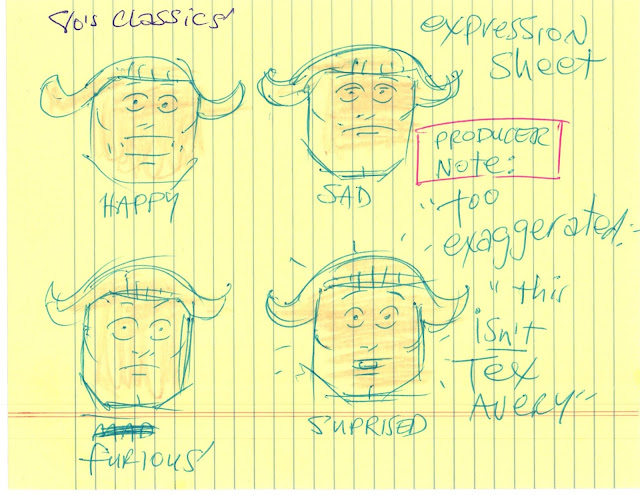 80's Classics
expression
Sheet
PRODUCER
Note:
"too
exaggerated."
"this
isn't
Tex
AVERY"
HAPPY
SAD
MAD
furious
SUPRISED